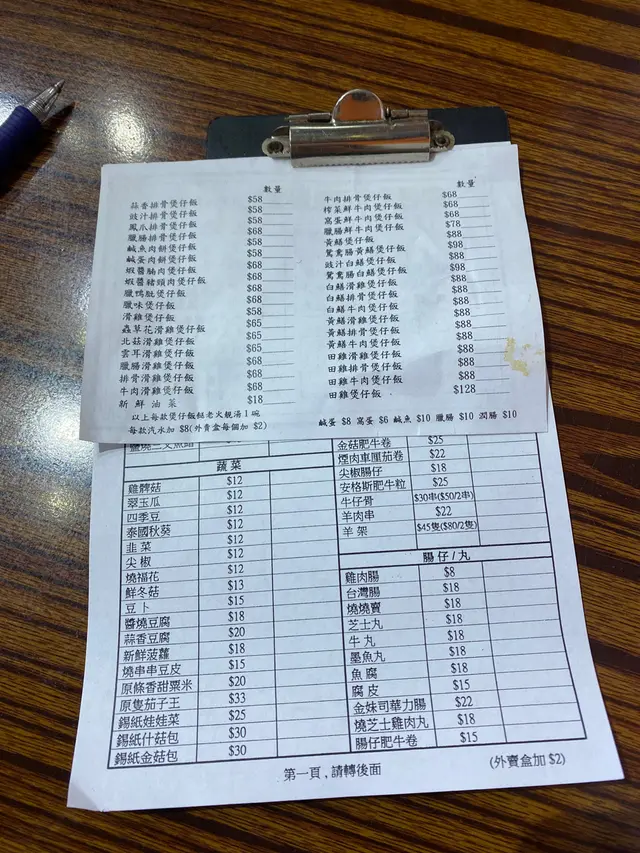 數量
蒜香排骨煲仔飯 $58
豉汁排骨煲仔飯 $58
鳳爪排骨煲仔飯 $58
臘腸排骨煲仔飯 $68
鹹魚肉餅煲仔飯 $58
鹹蛋肉餅煲仔飯 $58
蝦醬腩肉煲仔飯 $68
蝦醬豬頸肉煲仔飯 $68
臘鴨髀煲仔飯 $68
臘味煲仔飯 $68
滑雞煲仔飯 $58
蟲草花滑雞煲仔飯 $65
北菇滑雞煲仔飯 $65
雲耳滑雞煲仔飯 $65
臘腸滑雞煲仔飯 $68
排骨滑雞煲仔飯 $68
牛肉滑雞煲仔飯 $68
新鮮油菜 $18
以上每款煲仔飯跟老火靚湯1碗
每款汽水加 $8(外賣盒每個加 $2)
數量
牛肉排骨煲仔飯 $68
榨菜鮮牛肉煲仔飯 $68
窩蛋鮮牛肉煲仔飯 $68
臘腸鮮牛肉煲仔飯 $78
黃鱔煲仔飯 $88
鴛鴦腸黃鱔煲仔飯 $98
豉汁白鱔煲仔飯 $88
鴛鴦腸白鱔煲仔飯 $98
白鱔滑雞煲仔飯 $88
白鱔排骨煲仔飯 $88
白鱔牛肉煲仔飯 $88
黃鱔滑雞煲仔飯 $88
黃鱔排骨煲仔飯 $88
黃鱔牛肉煲仔飯 $88
田雞滑雞煲仔飯 $88
田雞排骨煲仔飯 $88
田雞牛肉煲仔飯 $88
田雞煲仔飯 $128
鹹蛋 $8 窩蛋 $6 鹹魚 $10 臘腸 $10 潤腸 $10
蔬菜
雞髀菇 $12
翠玉瓜 $12
四季豆 $12
泰國秋葵 $12
韭菜 $12
尖椒 $12
燒福花 $12
鮮冬菇 $13
豆卜 $15
醬燒豆腐 $18
蒜香豆腐 $20
新鮮菠蘿 $18
燒串串豆皮 $15
原條香甜粟米 $20
原隻茄子王 $33
錫紙娃娃菜 $25
錫紙什菇包 $30
錫紙金菇包 $30
金菇肥牛卷 $25
煙肉車厘茄卷 $22
尖椒腸仔 $18
安格斯肥牛粒 $25
牛仔骨 $30串($50/2串)
羊肉串 $22
羊架 $45隻($80/2隻)
腸仔/丸
雞肉腸 $8
台灣腸 $18
燒燒賣 $18
芝士丸 $18
牛丸 $18
墨魚丸 $18
魚腐 $18
腐皮 $15
金妹司華力腸 $22
燒芝士雞肉丸 $18
腸仔肥牛卷 $15
第一頁,請轉後面
(外賣盒加 $2)